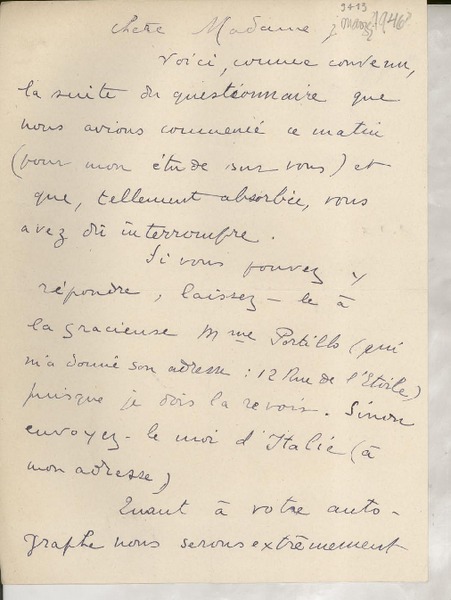 chère Madame,
Voici, comme convenu,
la suite du questionnaire que
nous avions commencé ce matin
(pour mon étude sur vous) et
que, tellement absorbée, vous
avez dû interrompre.
Si vous pouvez y
répondre, laissez-le à
la gracieuse Mme Portillo (qui
m'a donné son adresse : 12 Rue de l'Etoile,)
puisque je dois la revoir. Sinon
envoyez-le moi d'Italie (à
mon adresse)
Quant à votre auto-
graphe nous serons extrêmement
1946?